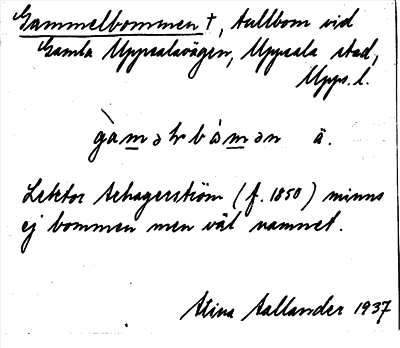 Gammelbommen †, tullbom vid
Gamla Uppsalavägen, Uppsala stad,
Upps. l.
gàməlbòmən ä.
Lektor Schagerström (f. 1850) minns
ej bommen men väl namnet.
Stina Sallander 1937